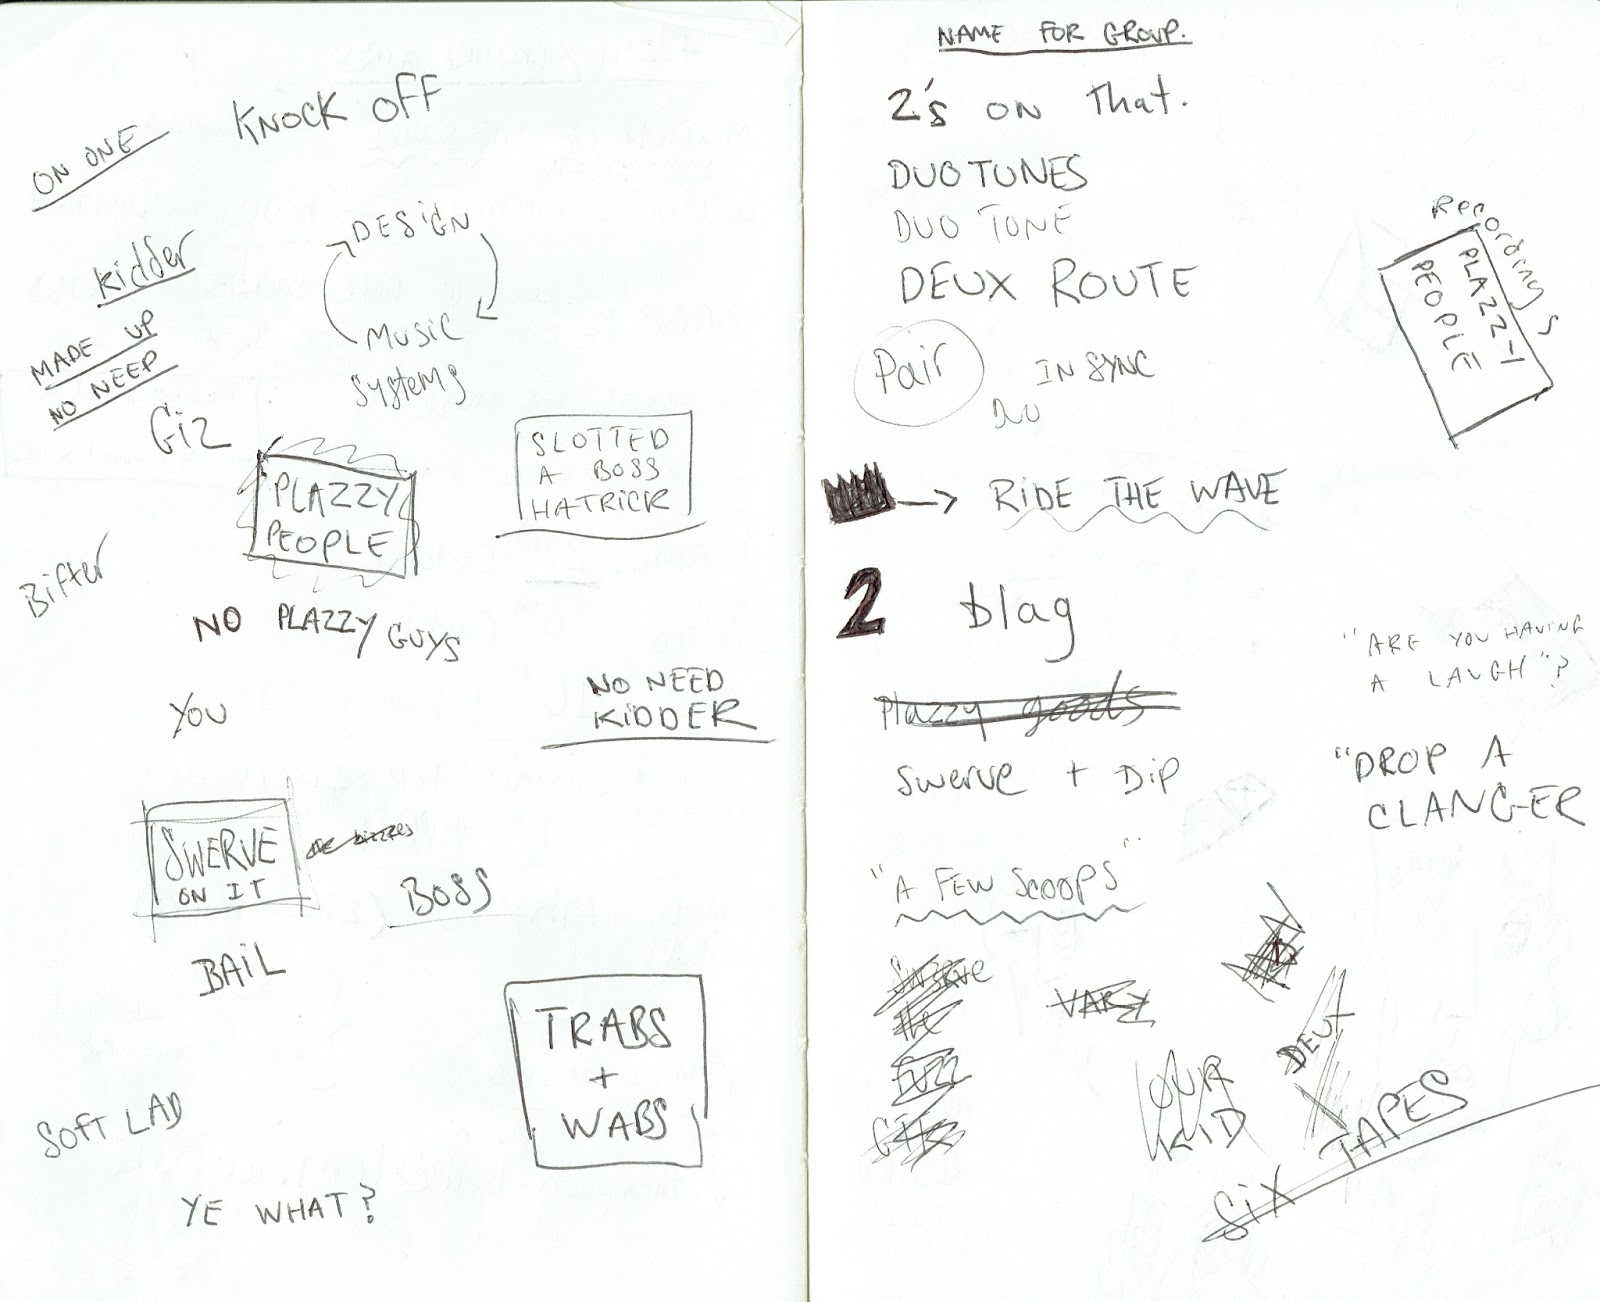 KNOCK OFF
ON ONE
DESIGN
kidder
MUSIC
SYSTEMS
MADE UP
NO NEEP
Giz
SLOTTED
A BOSS
HATRICK
PLAZZY
PEOPLE
Bifter
NO PLAZZY GUYS
NO NEED
KIDDER
YOU
SWERVE
ON IT
BOSS
BAIL
TRABS
+
WABS
SOFT LAD
YE WHAT?
NAME FOR GROUP.
2's ON That.
DUOTUNES
DUO TONE
DEUX ROUTE
Recordings
PLAZZY
PEOPLE
Pair
IN SYNC
DUO
RIDE THE WAVE
2 blag
"ARE YOU HAVING
A LAUGH"?
Plazzy goods
Swerve + Dip
"DROP A
CLANGER
"A FEW SCOOPS"
Swerve
the
fuzz
VARY
DEUX
OUR
KID
SIX TAPES